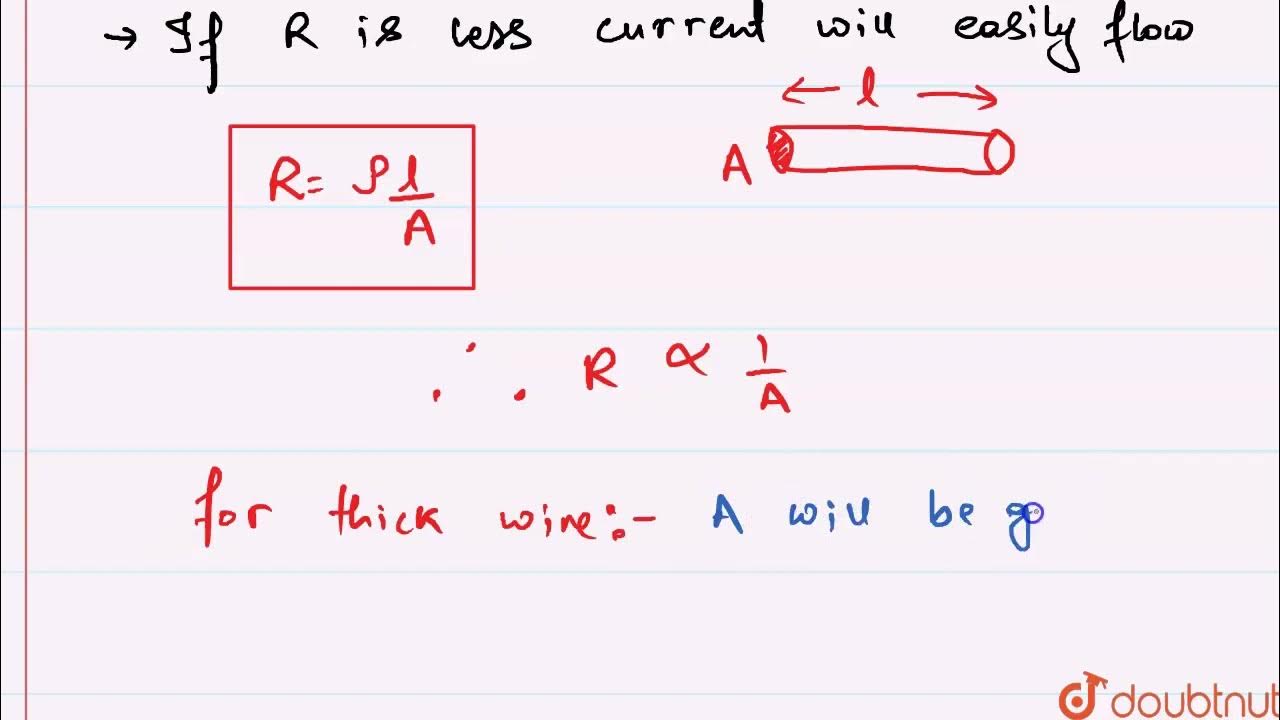 → If R is less current will easily flow
← l →
A
R = ρ l/A
∴ R ∝ 1/A
for thick wire:- A will be g
doubtnut